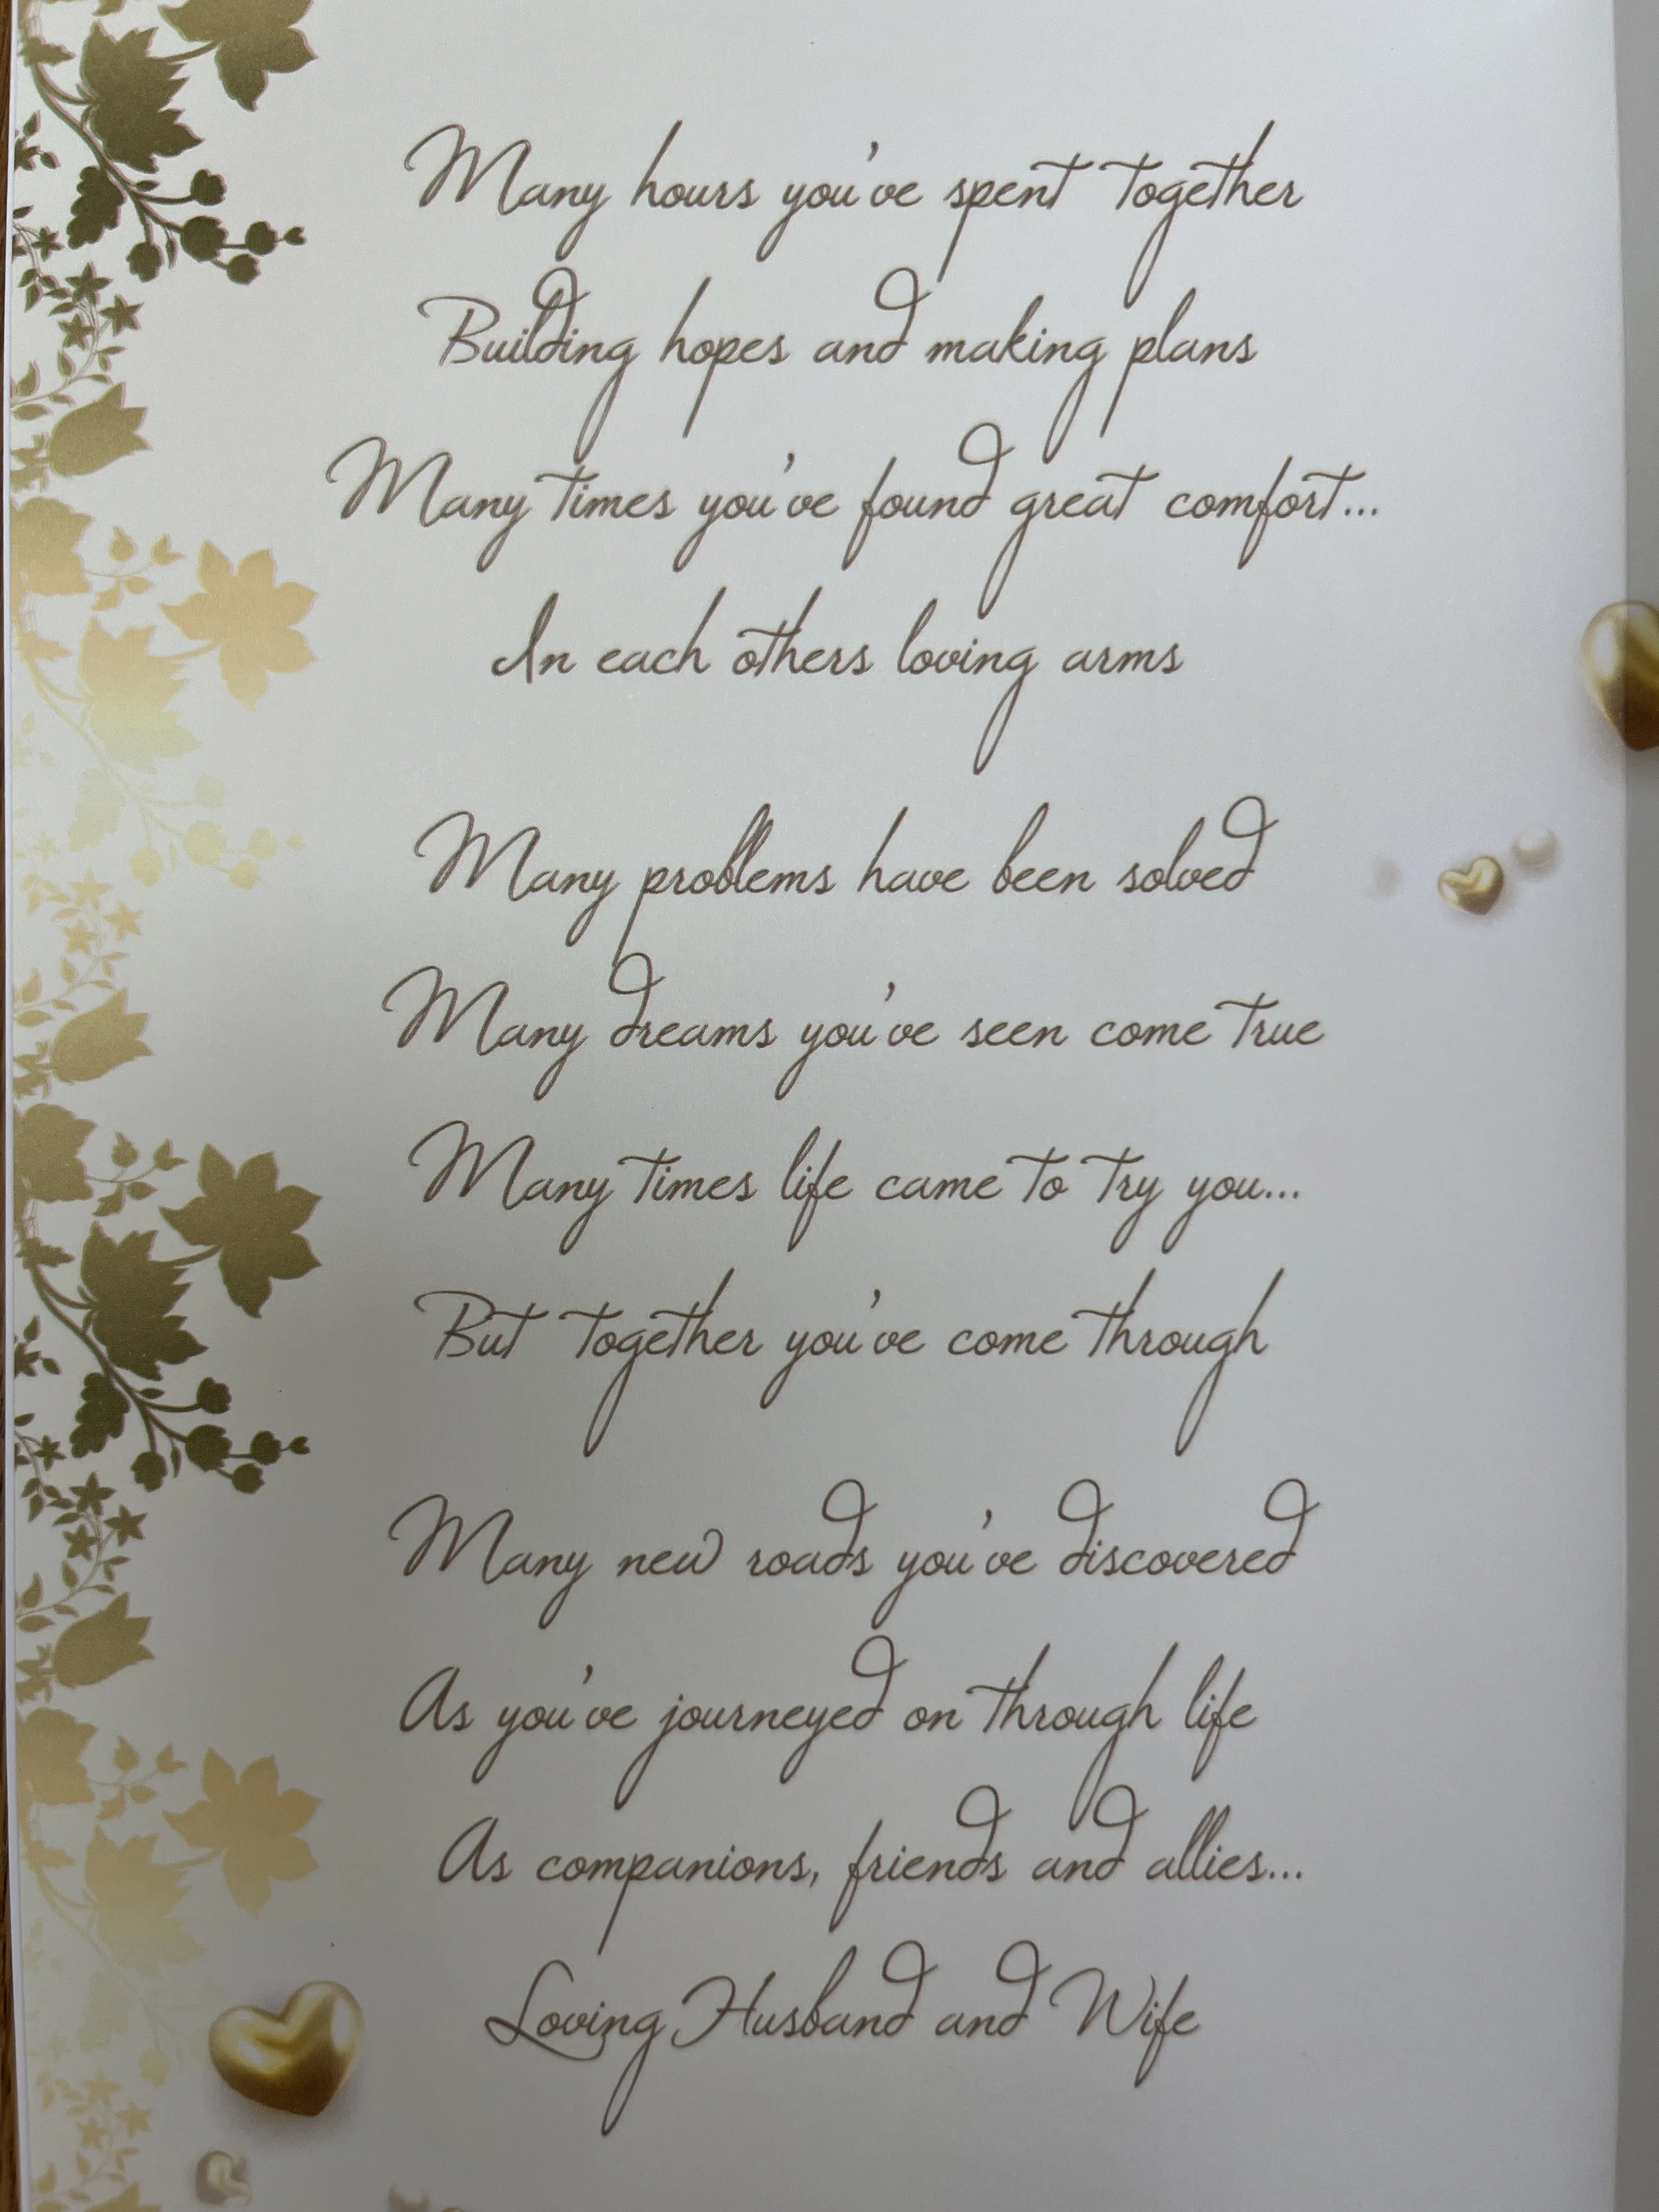 Many hours you've spent together
Building hopes and making plans
Many times you've found great comfort...
In each others loving arms
Many problems have been solved
Many dreams you've seen come true
Many times life came to try you...
But together you've come through
Many new roads you've discovered
As you've journeyed on through life
As companions, friends and allies...
Loving Husband and Wife